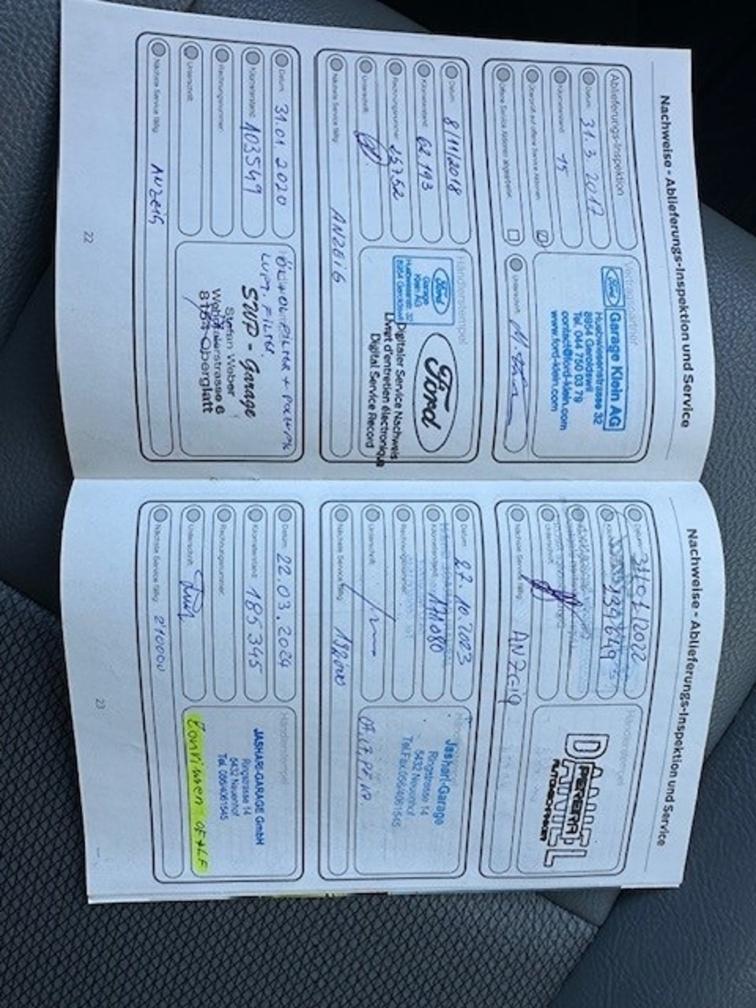 Nachweise - Ablieferungs-Inspektion und Service
Ablieferungs-Inspektion
Datum: 31.3 2017
Kilometerstand: 15
Überprüft auf offene Service Aktionen:
Offene Service Aktionen abgearbeitet:
Vertragspartner
Ford
Garage Klein AG
Huebwiesenstrasse 32
8954 Geroldswil
Tel. 044 750 03 79
contact@ford-klein.com
www.ford-klein.com
Unterschrift:
Datum: 8/11/2018
Kilometerstand: 62 193
Rechnungsnummer: 25752
Unterschrift:
Nächste Service fällig: ANZEIG
Händlerstempel
Ford
Garage
Klein AG
Huebwiesenstr. 32
8954 Geroldswil
Ford
Digitaler Service Nachweis
Livret d'entretien électronique
Digital Service Record
Datum: 31.01 2020
Kilometerstand: 103549
Rechnungsnummer:
Unterschrift:
Nächste Service fällig: ANZEIG
ÖL + ÖLFILTER + POLLENFI
LUFT. FILTER.
SWP - Garage
Stefan Weber
8154 Oberglatt
22
Nachweise - Ablieferungs-Inspektion und Service
Datum: 31/01/2022
139649
Unterschrift:
Nächste Service fällig: ANZeig
Händlerstempel
DANIEL
AUTOMECHANIKER
Datum: 27.10.2023
Kilometerstand: 171080
Rechnungsnummer:
Unterschrift:
Nächste Service fällig: 192000
Jashari-Garage
Ringstrasse 14
5432 Neuenhof
Tel.Fax.056/4061545
Datum: 22.03.2024
Kilometerstand: 185 345
Rechnungsnummer:
Unterschrift:
Nächste Service fällig: 210000
Händlerstempel
JASHARI-GARAGE GmbH
Ringstrasse 14
5432 Neuenhof
Tel. 056/4061545
Zahnriemen OF+LF
23